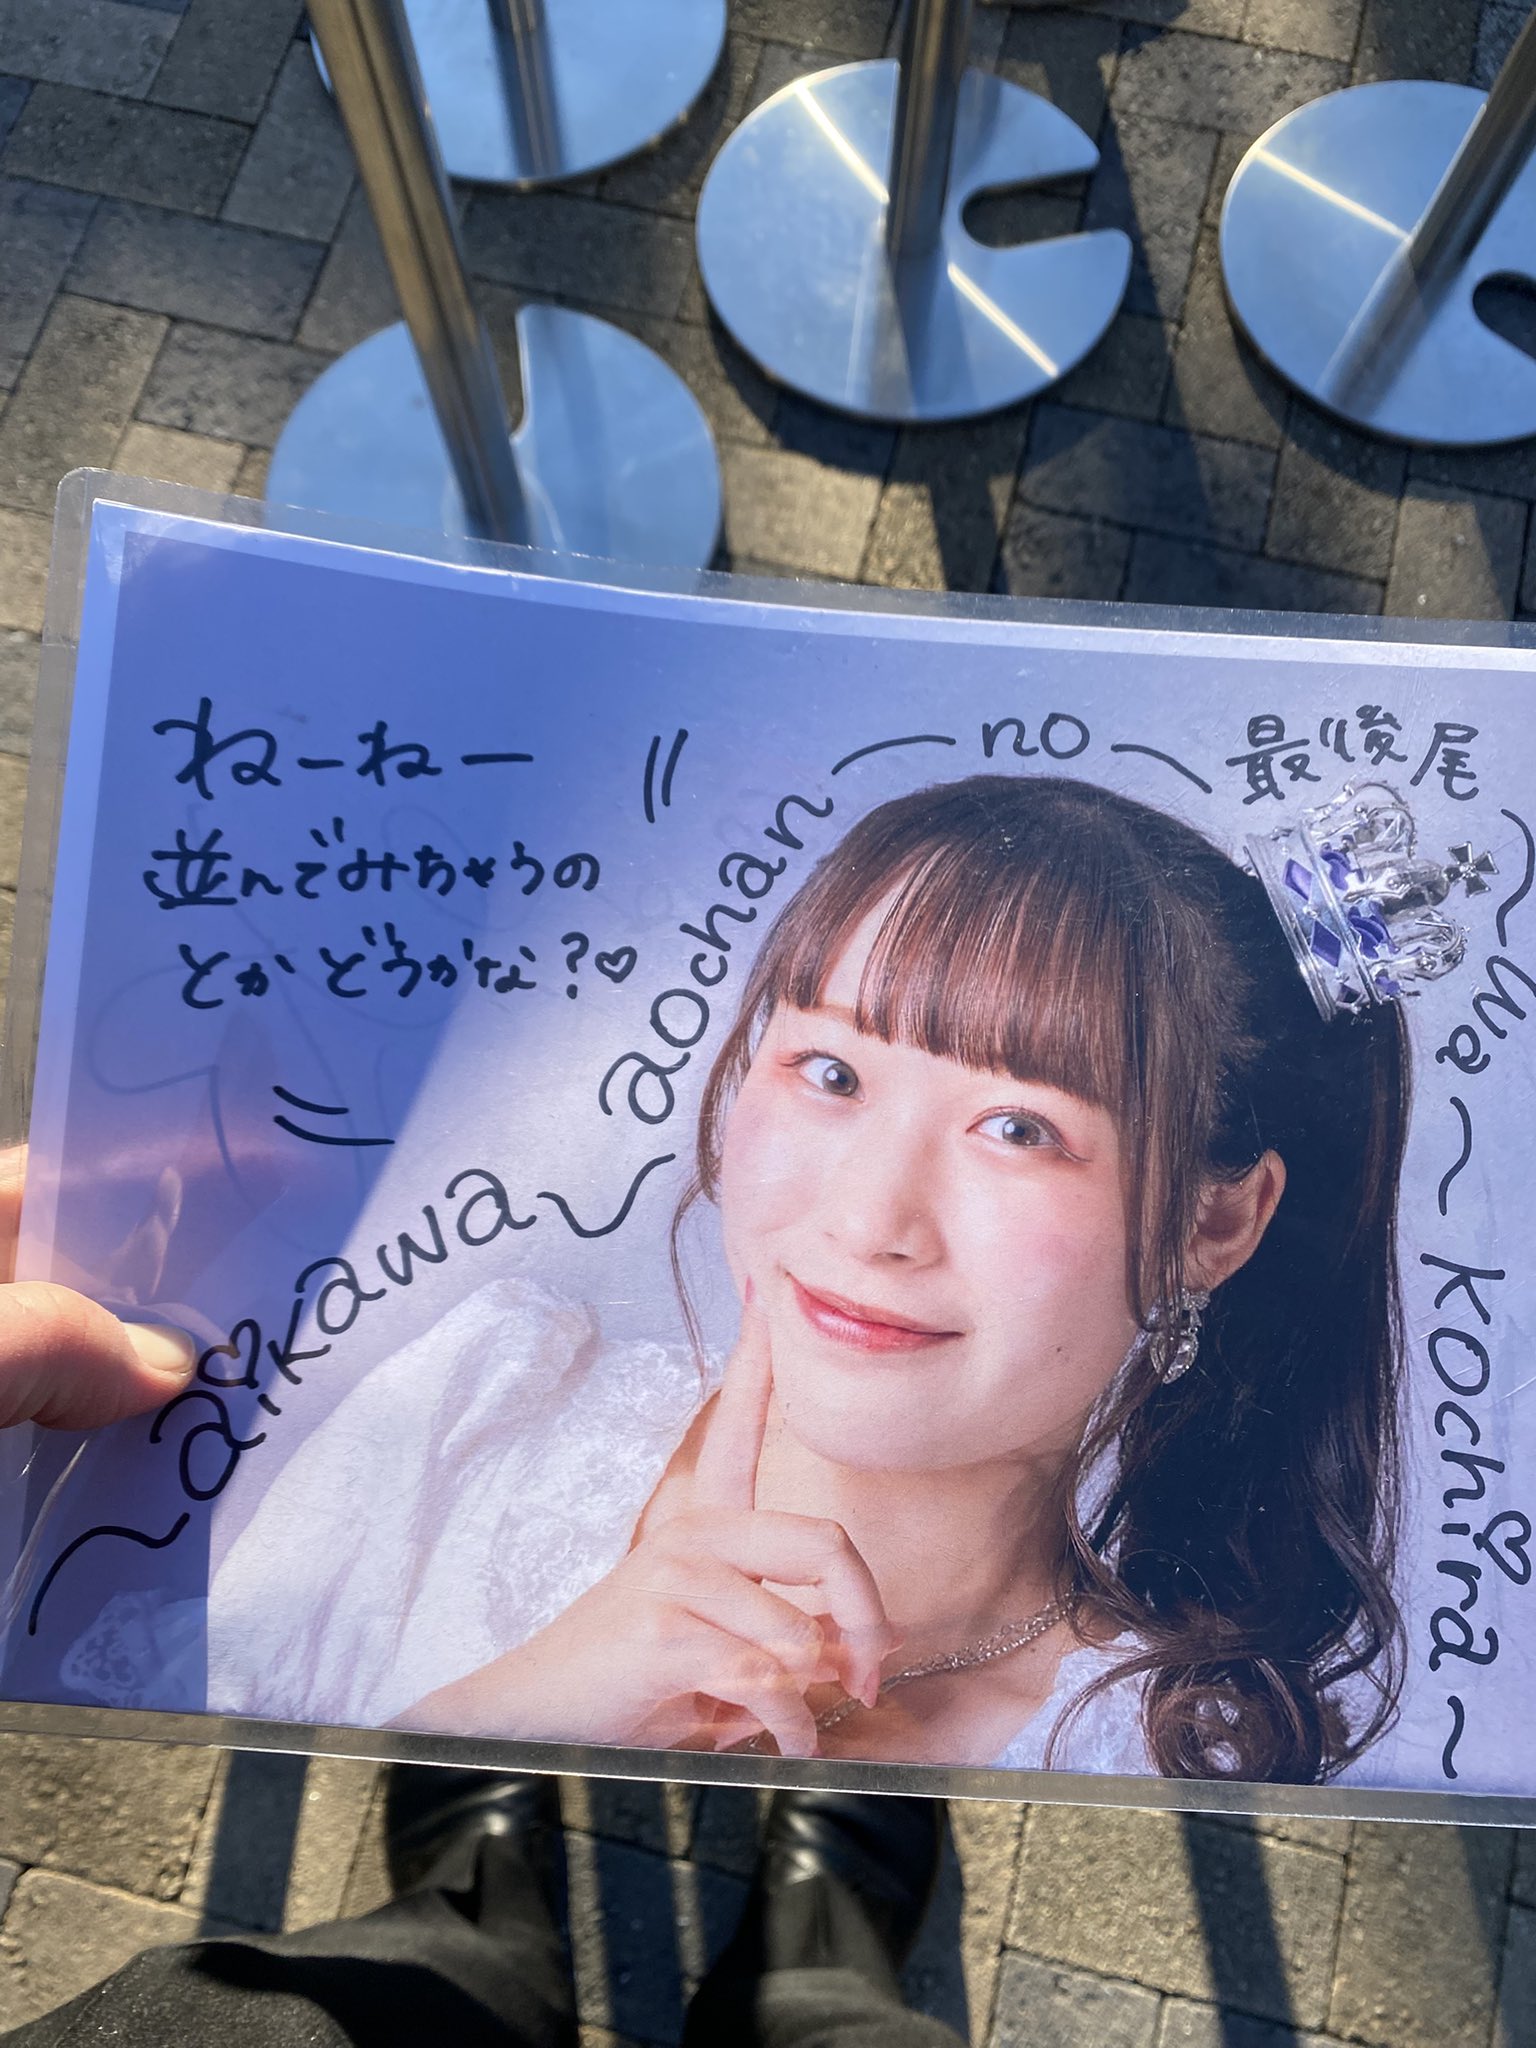 ねーねー
並んでみちゃうの
とかどうかな?♡
〜aikawa〜aochan〜no〜最後尾〜wa〜kochira〜